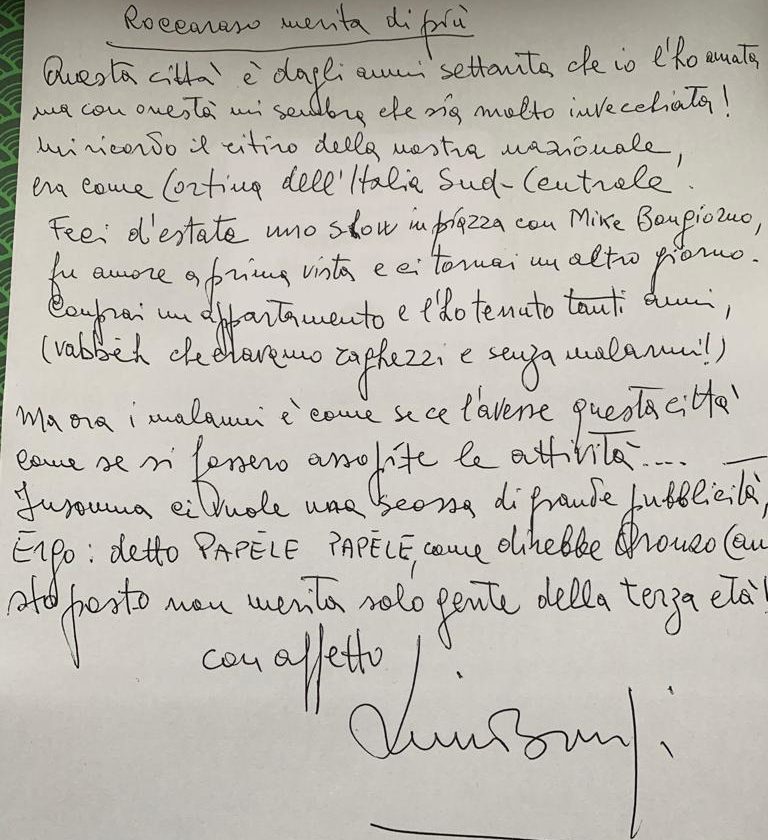 Roccaraso merita di più
Questa città è dagli anni settanta che io l'ho amata
ma con onestà mi sembra che sia molto invecchiata!
mi ricordo il ritiro della nostra nazionale,
era come Cortina dell'Italia Sud-Centrale.
Feci d'estate uno show in piazza con Mike Bongiorno,
fu amore a prima vista e ci tornai un altro giorno.
Comprai un appartamento e l'ho tenuto tanti anni,
(vabbèh che eravamo raghezzi e senza malanni!)
Ma ora i malanni è come se ce l'avesse questa città
come se si fossero assopite le attività....
Insomma ci vuole una scossa di grande pubblicità,
Ergo: detto PAPÈLE PAPÈLE, come direbbe Oronzo Can
sto posto non merita solo gente della terza età!
con affetto
Lino Banfi